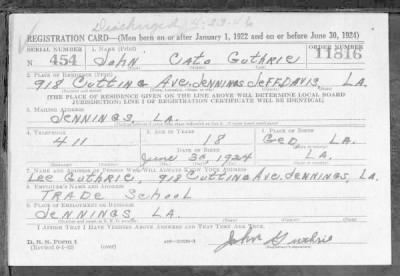 Discharged 4-23-46
REGISTRATION CARD—(Men born on or after January 1, 1922 and on or before June 30, 1924)
SERIAL NUMBER 1. NAME (Print) ORDER NUMBER
N 454 John Cato Guthrie 11816
2. PLACE OF RESIDENCE (Print)
918 Cutting Ave. Jennings Jeff Davis LA.
[THE PLACE OF RESIDENCE GIVEN ON THE LINE ABOVE WILL DETERMINE LOCAL BOARD
JURISDICTION; LINE 2 OF REGISTRATION CERTIFICATE WILL BE IDENTICAL]
3. MAILING ADDRESS
Jennings, LA.
4. TELEPHONE 5. AGE IN YEARS 6. PLACE OF BIRTH
411 18 Ged LA.
DATE OF BIRTH
June 30 1924 LA.
7. NAME AND ADDRESS OF PERSON WHO WILL ALWAYS KNOW YOUR ADDRESS
Lee Guthrie, 918 Cutting Ave. Jennings, LA.
8. EMPLOYER'S NAME AND ADDRESS
TRADE School
9. PLACE OF EMPLOYMENT OR BUSINESS
Jennings LA.
I AFFIRM THAT I HAVE VERIFIED ABOVE ANSWERS AND THAT THEY ARE TRUE.
D. S. S. Form 1
(over) John Guthrie